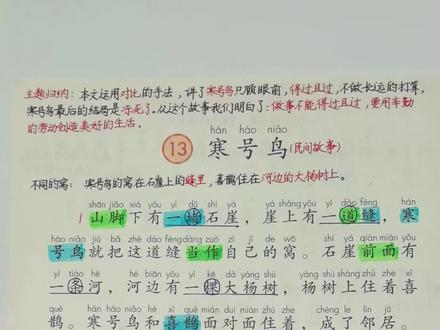 主题归纳：本文运用对比的手法，讲了寒号鸟只顾眼前，得过且过，不做长远的打算，
寒号鸟最后的结局是冻死了。从这个故事我们明白了：做事不能得过且过，要用辛勤
的劳动创造美好的生活。
hán hào niǎo
13 寒号鸟(民间故事)
不同的窝：寒号鸟的窝在石崖上的缝里，喜鹊住在河边的大杨树上。
shān jiǎo xià yǒu yí dǔ shí yá yá shàng yǒu yí dào fèng hán
1 山脚下有一堵石崖，崖上有一道缝，寒
háo niǎo jiù bǎ zhè dào fèng dàng zuò zì jǐ de wō shí yá qián miàn yǒu
号鸟就把这道缝当作自己的窝。石崖前面有
yì tiáo hé hé biān yǒu yì kē dà yáng shù yáng shù shàng zhù zhe xǐ
一条河，河边有一棵大杨树，杨树上住着喜
què hán háo niǎo hé xǐ què miàn duì miàn zhù zhe chéng le lín jū
鹊。寒号鸟和喜鹊面对面住着，成了邻居。